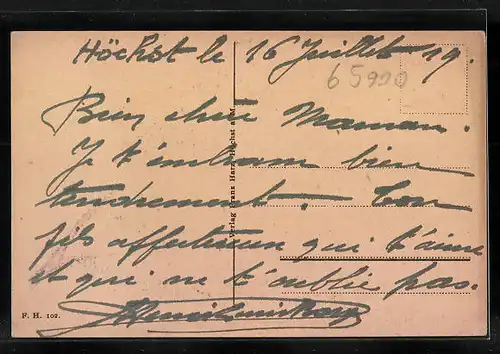 Höchst le 16 Juillet 19.
65920
Bien chère Maman.
Je t'embrasse bien
tendrement. Ton
fils affectueux qui t'aime
et qui ne t'oublie pas.
Verlag Franz Harz, Höchst a. M.
F. H. 102.